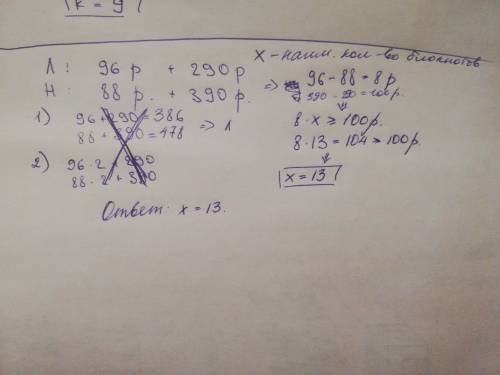 k = 9
Л: 96 р + 290 р
Н: 88 р. + 390 р.
1) 96 + 290 = 386
88 + 390 = 478 => Л
2) 96 · 2 + 290
88 · 2 + 390
Ответ: x = 13.
X - наим. кол-во блокнотов
=> 96 - 88 = 8 р
390 - 290 = 100 р.
8 · x ≥ 100 р.
8 · 13 = 104 > 100 р.
x = 13